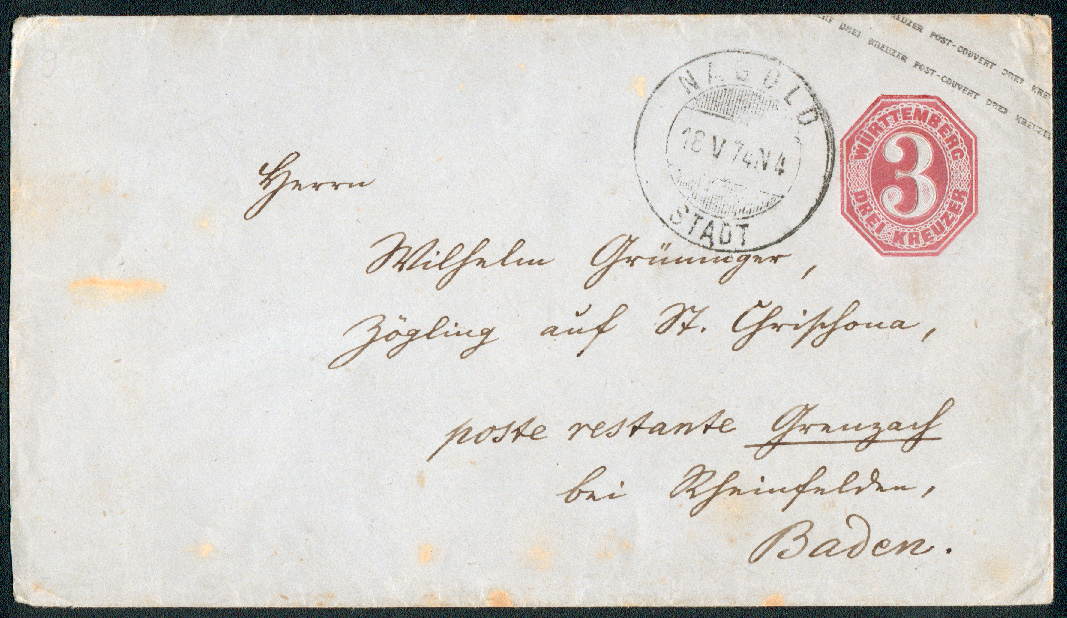 DREI KREUZER POST-COUVERT DREI KREUZER
KREUZER POST-COUVERT DREI KRE
NAGOLD
18 V 74 N 4
STADT
WÜRTTEMBERG
3
DREI KREUZER
Herrn
Wilhelm Grüninger,
Zögling auf St. Chrischona,
poste restante Grenzach
bei Rheinfelden,
Baden.